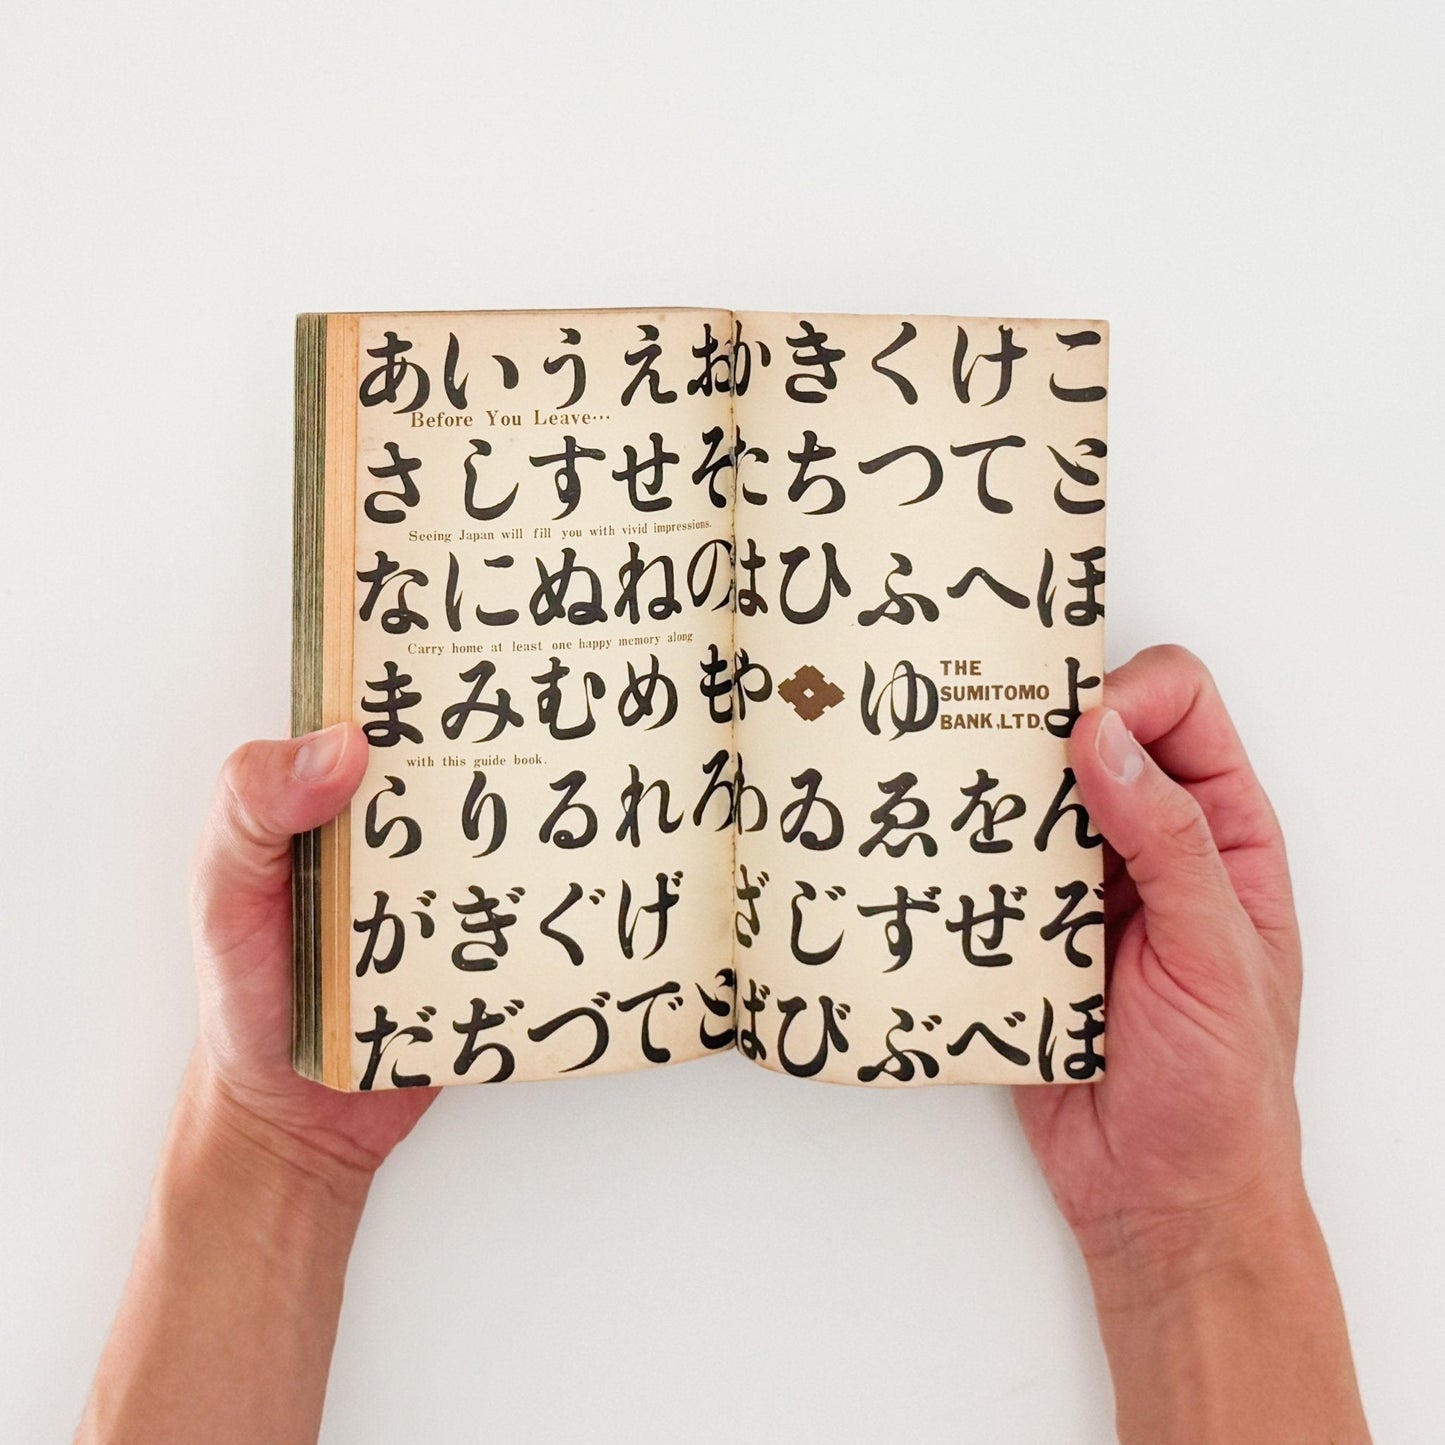 あいうえおかきくけこ
Before You Leave…
さしすせそたちつてと
Seeing Japan will fill you with vivid impressions.
なにぬねのはひふへほ
Carry home at least one happy memory along
まみむめもやゆよ
THE
SUMITOMO
BANK,LTD.
with this guide book.
らりるれろわゐゑをん
がぎぐげざじずぜぞ
だぢづでどばびぶべぼ